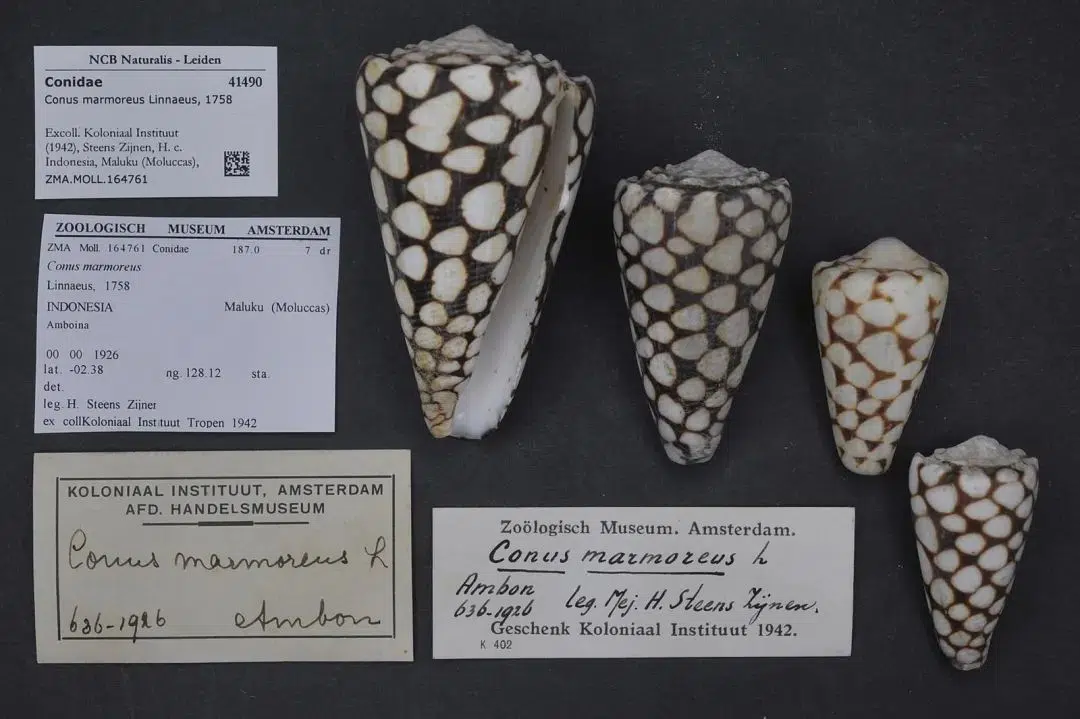 NCB Naturalis - Leiden
Conidae 41490
Conus marmoreus Linnaeus, 1758
Excoll. Koloniaal Instituut
(1942), Steens Zijnen, H. c.
Indonesia, Maluku (Moluccas),
ZMA.MOLL.164761
ZOÖLOGISCH MUSEUM AMSTERDAM
ZMA Moll. 164761 Conidae 187.0 7 dr
Conus marmoreus
Linnaeus, 1758
INDONESIA Maluku (Moluccas)
Amboina
00 00 1926
lat. -02.38 ng. 128.12 sta.
det.
leg. H. Steens Zijner
ex collKoloniaal Instituut Tropen 1942
KOLONIAAL INSTITUUT, AMSTERDAM
AFD. HANDELSMUSEUM
Conus marmoreus L
636-1926 Ambon
Zoölogisch Museum. Amsterdam.
Conus marmoreus L
Ambon
636-1926 leg. Mej. H. Steens Zijnen.
Geschenk Koloniaal Instituut 1942.
K 402